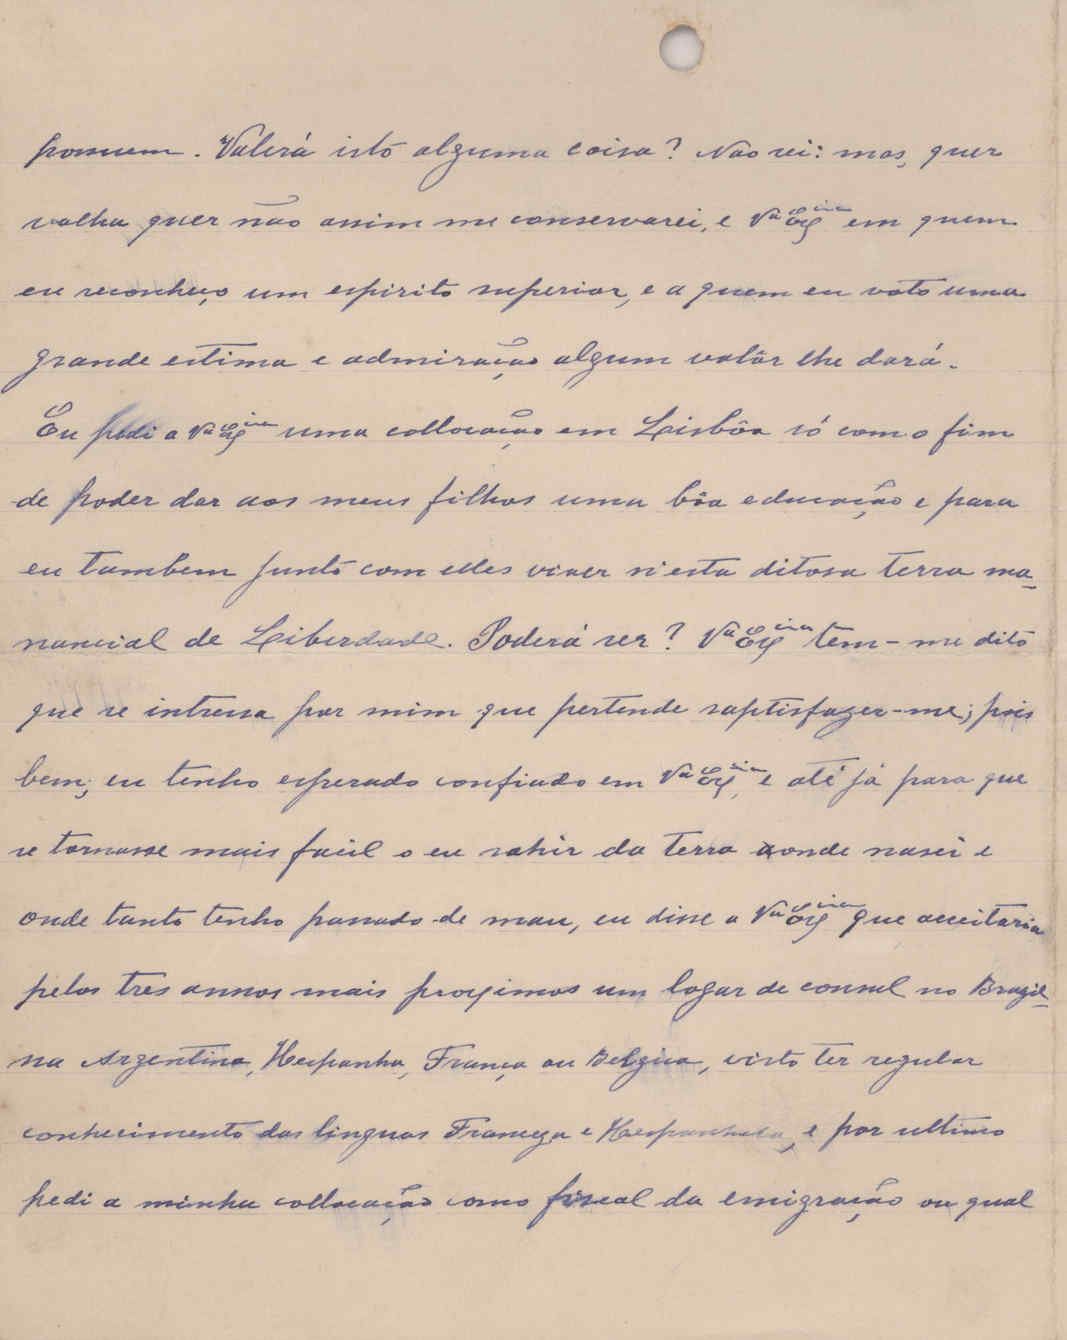 possuem. Valerá isto alguma coisa? Não sei: mas, quer
valha quer não assim me conservarei, e Vª Exᶜⁱᵃ em quem
eu reconheço um espirito superior, e a quem eu voto uma
grande estima e admiração algum valôr lhe dará.
Eu pedi a Vª Exᶜⁱᵃ uma collocação em Lisbôa só com o fim
de poder dar aos meus filhos uma bôa educação e para
eu tambem junto com elles viver n'esta ditosa terra ma-
nancial de Liberdade. Poderá ser? Vª Exᶜⁱᵃ tem-me dito
que se intressa por mim que pertende saptisfazer-me; pois
bem; eu tenho esperado confiado em Vª Exᶜⁱᵃ, e até já para que
se tornasse mais facil o eu sahir da terra aonde nasci e
onde tanto tenho passado de mau, eu disse a Vª Exᶜⁱᵃ que acceitaria
pelos tres annos mais proximos um logar de consul no Brazil-
na Argentina, Hespanha, França ou Belgica, visto ter regular
conhecimento das linguas Franceza e Hespanhola, e por ultimo
pedi a minha collocação como fiscal da emigração ou qual